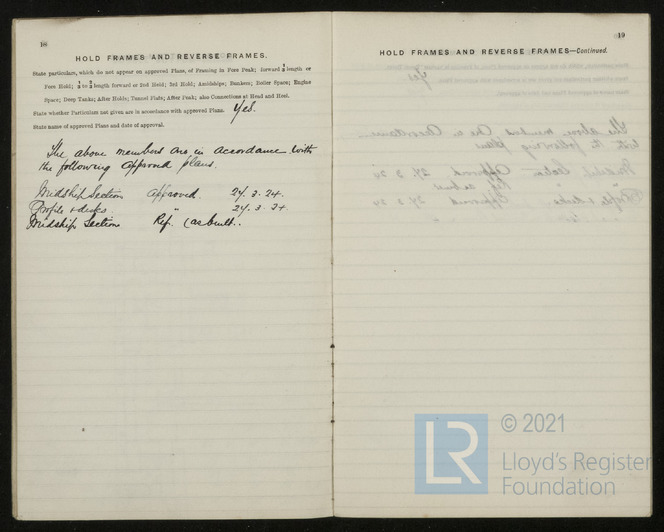 18
HOLD FRAMES AND REVERSE FRAMES.
State particulars, which do not appear on approved Plans, of Framing in Fore Peak; forward 1/5 length or
Fore Hold; 1/5 to 2/5 length forward or 2nd Hold; 3rd Hold; Amidships; Bunkers; Boiler Space; Engine
Space; Deep Tanks; After Holds; Tunnel Flats; After Peak; also Connections at Head and Heel.
State whether Particulars not given are in accordance with approved Plans. Yes.
State name of approved Plans and date of approval.
The above members are in accordance with
the following approved plans.
Midship Section approved. 24.3.24.
Profile & decks. " 24.3.24.
Midship Section Rep. (as built..
19
HOLD FRAMES AND REVERSE FRAMES—Continued.
LR
© 2021
Lloyd's Register
Foundation